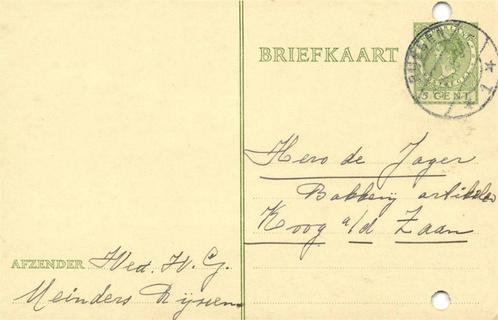 BRIEFKAART
5 CENT
Hero de Jager
Bakkerij artikelen
Koog a/d Zaan
AFZENDER Wed. H. G.
Meinders Rijssen